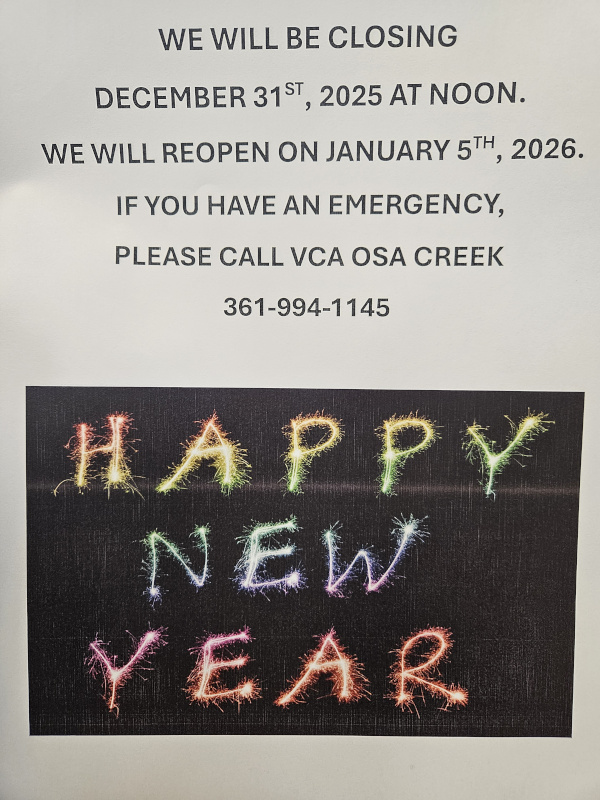 WE WILL BE CLOSING
DECEMBER 31ST, 2025 AT NOON.
WE WILL REOPEN ON JANUARY 5TH, 2026.
IF YOU HAVE AN EMERGENCY,
PLEASE CALL VCA OSA CREEK
361-994-1145
HAPPY
NEW
YEAR